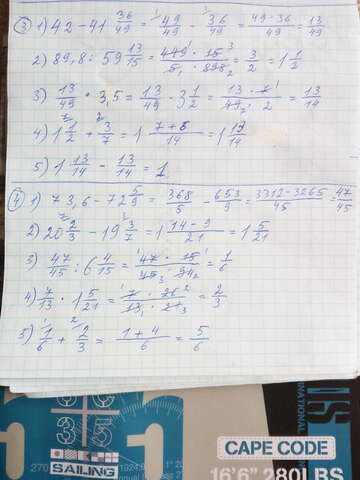 ③ 1) 42 - 41 36/49 = 49/49 - 36/49 = (49-36)/49 = 13/49
2) 89,8 : 59 13/15 = (449 · 15)/(5 · 898) = 3/2 = 1 1/2
3) 13/49 · 3,5 = 13/49 · 3 1/2 = (13 · 7)/(49 · 2) = 13/14
4) 1 1/2 + 3/7 = 1 (7+6)/14 = 1 13/14
5) 1 13/14 - 13/14 = 1
④ 1) 73,6 - 72 5/9 = 368/5 - 653/9 = (3312-3265)/45 = 47/45
2) 20 2/3 - 19 3/7 = 1 (14-9)/21 = 1 5/21
3) 47/45 : 6 4/15 = (47 · 15)/(45 · 94) = 1/6
4) 7/13 · 1 5/21 = (7 · 26)/(13 · 21) = 2/3
5) 1/6 + 2/3 = (1+4)/6 = 5/6
SAILING
CAPE CODE
16'6" 280LBS